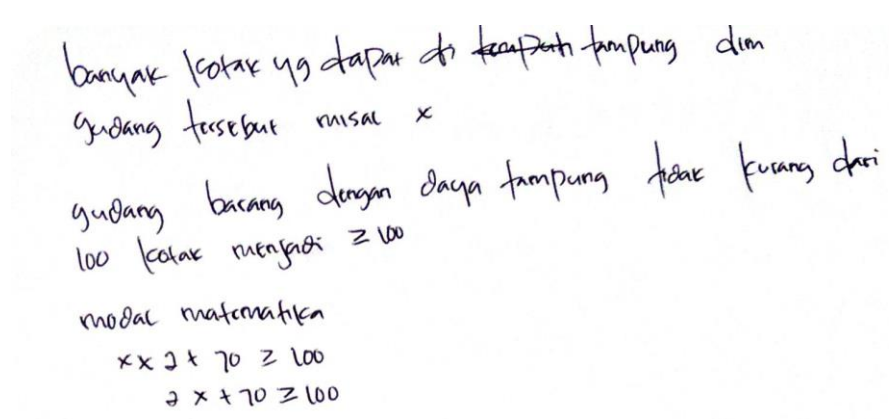 banyak kotak yg dapat di tampung dlm
gudang tersebut misal x
gudang barang dengan daya tampung tidak kurang dari
100 kotak menjadi ≥ 100
modal matematika
x x 2 + 70 ≥ 100
2 x + 70 ≥ 100